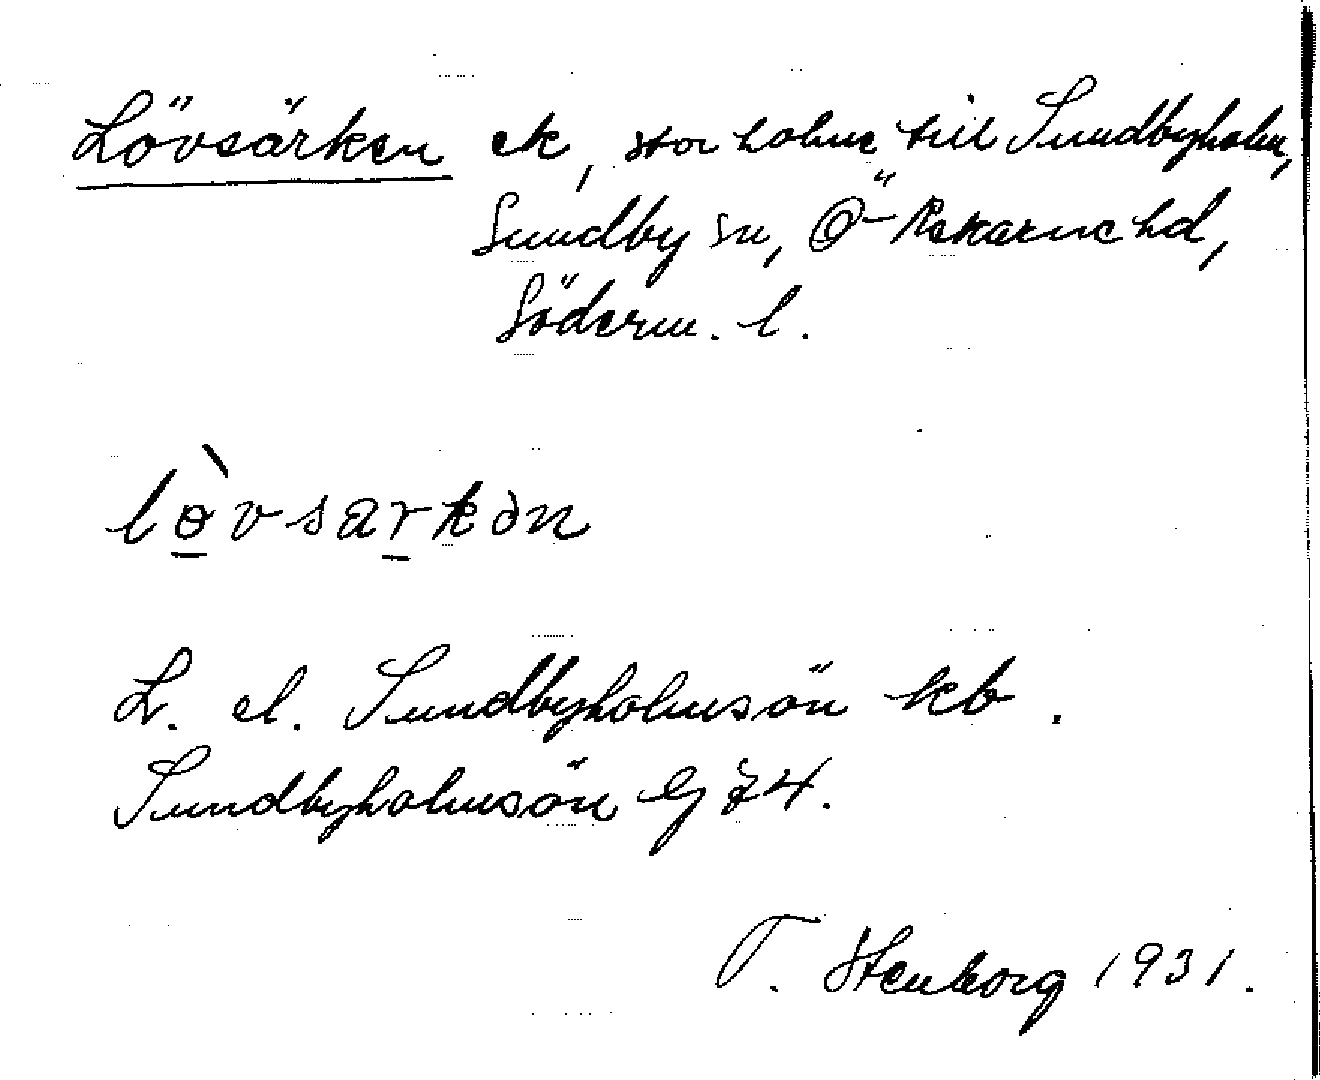 Lövsärken ek, stor holme till Sundbyholm,
Sundby sn, Ö-Rekarne hd,
Söderm. l.
lø̠̀vsar̠kən
L. el. Sundbyholmsön kb.
Sundbyholmsön G 74.
T. Stenborg 1931.